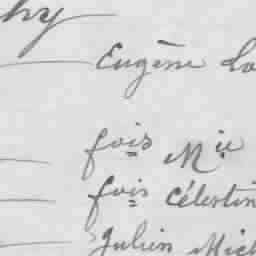 hy
Eugène La
fois M ie
fois Célestin
Julien Mich